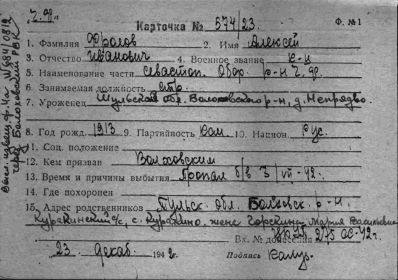 Ч. Ф.
Карточка № 574/23.
Ф. № 1
1. Фамилия Фролов 2. Имя Алексей
3. Отчество Иванович 4. Военное звание к-ц
5. Наименование части Севастоп. Обор. р-н Ч. Ф.
6. Занимаемая должность стр.
7. Уроженец Тульской обл. Волховского р-н, д. Непрядво
8. Год рожд. 1913 9. Партийность 10. Национ. рус.
11. Соц. положение
12. Кем призван Волховским
13. Время и причины выбытия Пропал б/в 3/VII-42г.
14. Где похоронен
15. Адрес родственников Тульск. обл. Волховск. р-н,
Куракинский с/с, с. Куракино. жене Горскина Мария Васильевна
Вх. № донесения 275 сс-42г.
23. декаб. 1942 г. Подпись